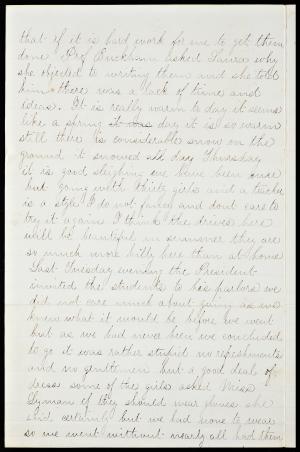 that if it is hard work for me to get them
done Prof Buckham asked Laura why
she objected to writing them and she told
him there was a lack of time and
ideas. It is really warm to day it seems
like a spring it was day it is so warm
still there is considerable snow on the
ground it snowed all day Thursday
it is good sleighing we have been once
but going with thirty girls and a teacher
is a style I do not fancy and dont care to
try it again I think the drives here
will be beautiful in summer they are
so much more hilly here than at home
Last Tuesday evening the President
invited the students to his parlors we
did not care much about going as we
knew what it would be before we went
but as we had never been we concluded
to go it was rather stupid no refreshments
and no gentlemen but a good deal of
dress some of the girls asked Miss
Lyman if they should wear gloves she
said certainly but we had none to wear
so we went without nearly all had them